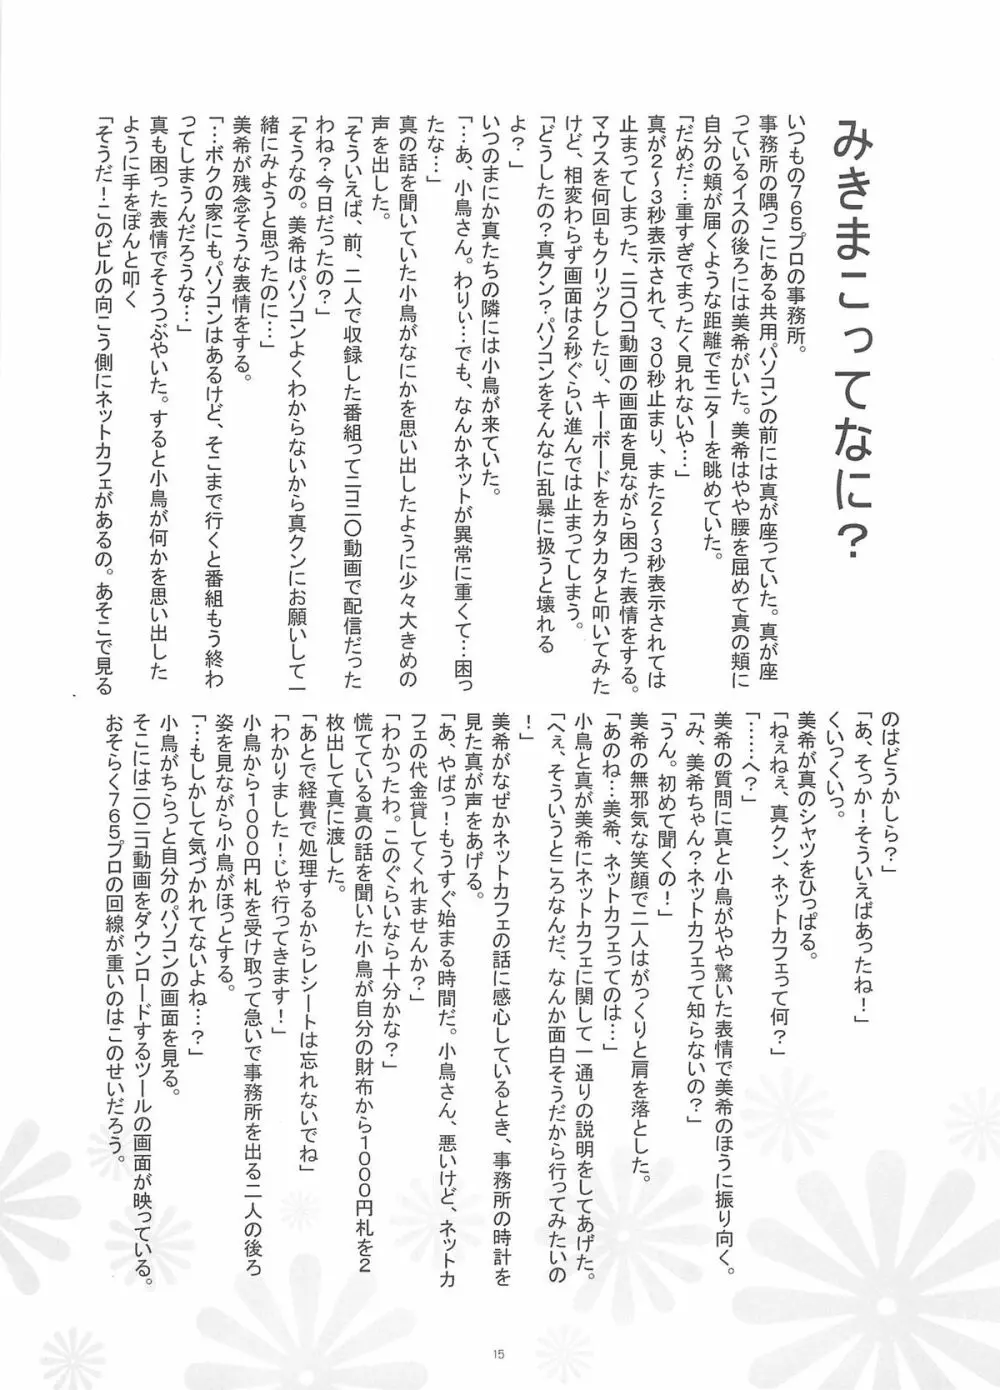 みきまこってなに?
いつもの765プロの事務所。
事務所の隅っこにある共用パソコンの前には真が座っていた。真が座
っているイスの後ろには美希がいた。美希はやや腰を屈めて真の頬に
自分の頬が届くような距離でモニターを眺めていた。
「だめだ…重すぎでまったく見れないや…」
真が2~3秒表示されて、30秒止まり、また2~3秒表示されては
止まってしまった、ニコ〇コ動画の画面を見ながら困った表情をする。
マウスを何回もクリックしたり、キーボードをカタカタと叩いてみた
けど、相変わらず画面は2秒ぐらい進んでは止まってしまう。
「どうしたの?真クン?パソコンをそんなに乱暴に扱うと壊れる
よ?」
いつのまにか真たちの隣には小鳥が来ていた。
「…あ、小鳥さん。わりぃ…でも、なんかネットが異常に重くて…困っ
たな…」
真の話を聞いていた小鳥がなにかを思い出したように少々大きめの
声を出した。
「そういえば、前、二人で収録した番組ってニコニ〇動画で配信だった
わね?今日だったの?」
「そうなの。美希はパソコンよくわからないから真クンにお願いして一
緒にみようと思ったのに…」
美希が残念そうな表情をする。
「…ボクの家にもパソコンはあるけど、そこまで行くと番組もう終わ
ってしまうんだろうな…」
真も困った表情でそうつぶやいた。すると小鳥が何かを思い出した
ように手をぽんと叩く
「そうだ!このビルの向こう側にネットカフェがあるの。あそこで見る
のはどうかしら?」
「あ、そっか!そういえばあったね!」
くいっくいっ。
美希が真のシャツをひっぱる。
「ねぇねぇ、真クン、ネットカフェって何?」
「……へ?」
美希の質問に真と小鳥がやや驚いた表情で美希のほうに振り向く。
「み、美希ちゃん?ネットカフェって知らないの?」
「うん。初めて聞くの!」
美希の無邪気な笑顔で二人はがっくりと肩を落とした。
「あのね…美希、ネットカフェってのは…」
小鳥と真が美希にネットカフェに関して一通りの説明をしてあげた。
「へぇ、そういうところなんだ、なんか面白そうだから行ってみたいの
!」
美希がなぜかネットカフェの話に感心しているとき、事務所の時計を
見た真が声をあげる。
「あ、やばっ!もうすぐ始まる時間だ。小鳥さん、悪いけど、ネットカ
フェの代金貸してくれませんか?」
「わかったわ。このぐらいなら十分かな?」
慌てている真の話を聞いた小鳥が自分の財布から1000円札を2
枚出して真に渡した。
「あとで経費で処理するからレシートは忘れないでね」
「わかりました!じゃ行ってきます!」
小鳥から1000円札を受け取って急いで事務所を出る二人の後ろ
姿を見ながら小鳥がほっとする。
「…もしかして気づかれてないよね…?」
小鳥がちらっと自分のパソコンの画面を見る。
そこには二〇ニコ動画をダウンロードするツールの画面が映っている。
おそらく765プロの回線が重いのはこのせいだろう。
15